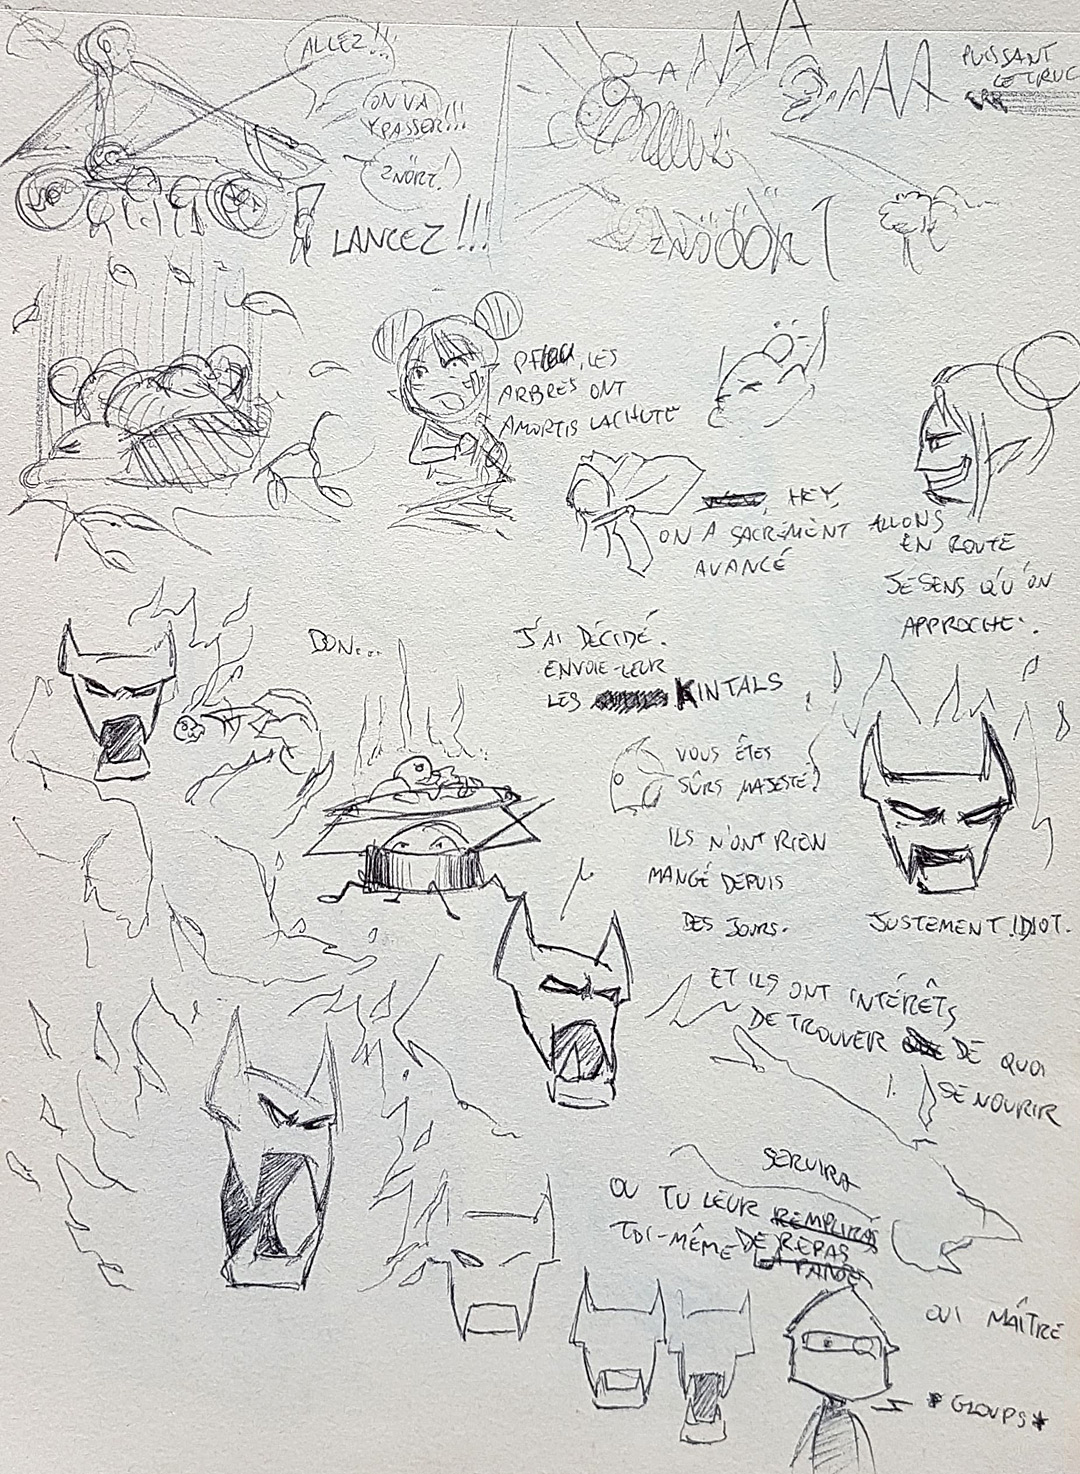 ALLEZ!!!
ON VA
Y PASSER!!!
ZNÖRT!
LANCEZ!!!
A A A A
A A A A
PUISSANT
CE TRUC
, LES
ARBRES ONT
AMORTIS LA CHUTE
, HEY,
ON A SACRÉMENT
AVANCÉ
ALLONS
EN ROUTE
JE SENS QU'ON
APPROCHE.
BON...
J'AI DÉCIDÉ.
ENVOIE-LEUR
LES KINTALS
VOUS ÊTES
SÛRS MAJESTÉ?
ILS N'ONT RIEN
MANGÉ DEPUIS
DES JOURS.
JUSTEMENT! IDIOT.
ET ILS ONT INTÉRÊTS
DE TROUVER DE QUOI
SE NOURIR
SERVIRA
OU TU LEUR REMPLIRAS
TOI-MÊME DE REPAS
LA PANSE
OUI MAÎTRE
*GLOUPS*